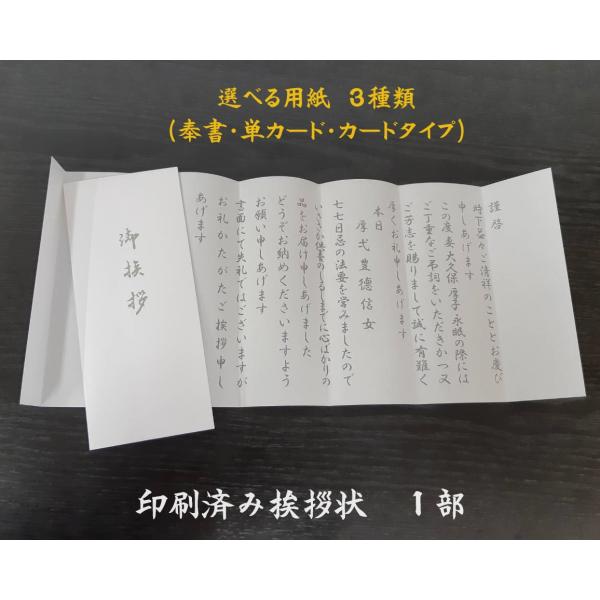 選べる用紙　３種類
（奉書・単カード・カードタイプ）
御挨拶
謹啓
時下益々ご清祥のこととお慶び
申しあげます
この度妻大久保厚子永眠の際には
ご丁重なご弔詞をいただきかつ又
ご芳志を賜りまして誠に有難く
厚くお礼申しあげます
本日
厚弌豊徳信女
七七日忌の法要を営みましたので
いささか供養のしるしまでに心ばかりの
品をお届け申しあげました
どうぞお納めくださいますよう
お願い申しあげます
書面にて失礼ではございますが
お礼かたがたご挨拶申し
あげます
印刷済み挨拶状　１部